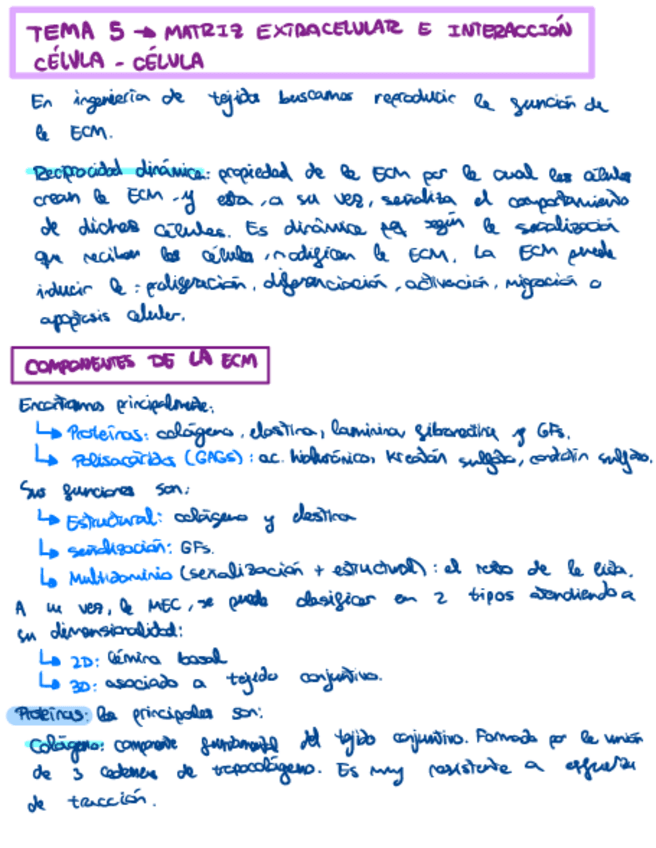 TEMA 5 → MATRIZ EXTRACELULAR E INTERACCIÓN
CÉLULA - CÉLULA
En ingeniería de tejidos buscamos reproducir la función de
la ECM.
Reciprocidad dinámica: propiedad de la ECM por la cual las células
crean la ECM y esta, a su vez, señaliza el comportamiento
de dichas células. Es dinámica pq según la señalización
que reciban las células, modifican la ECM. La ECM puede
inducir la: proliferación, diferenciación, activación, migración o
apoptosis celular.
COMPONENTES DE LA ECM
Encontramos principalmente:
↳ Proteínas: colágeno, elastina, laminina, fibronectina y GFs.
↳ Polisacáridos (GAGs): ac. hialurónico, Kreatán sulfato, condotín sulfato.
Sus funciones son:
↳ Estructural: colágeno y elastina
↳ señalización: GFs.
↳ Multidominio (señalización + estructural): el resto de la lista.
A su vez, la MEC, se puede clasificar en 2 tipos atendiendo a
su dimensionalidad:
↳ 2D: lámina basal
↳ 3D: asociado a tejido conjuntivo.
Proteínas: las principales son:
Colágeno: componente fundamental del tejido conjuntivo. Formado por la unión
de 3 cadenas de tropocolágeno. Es muy resistente a esfuerzos
de tracción.